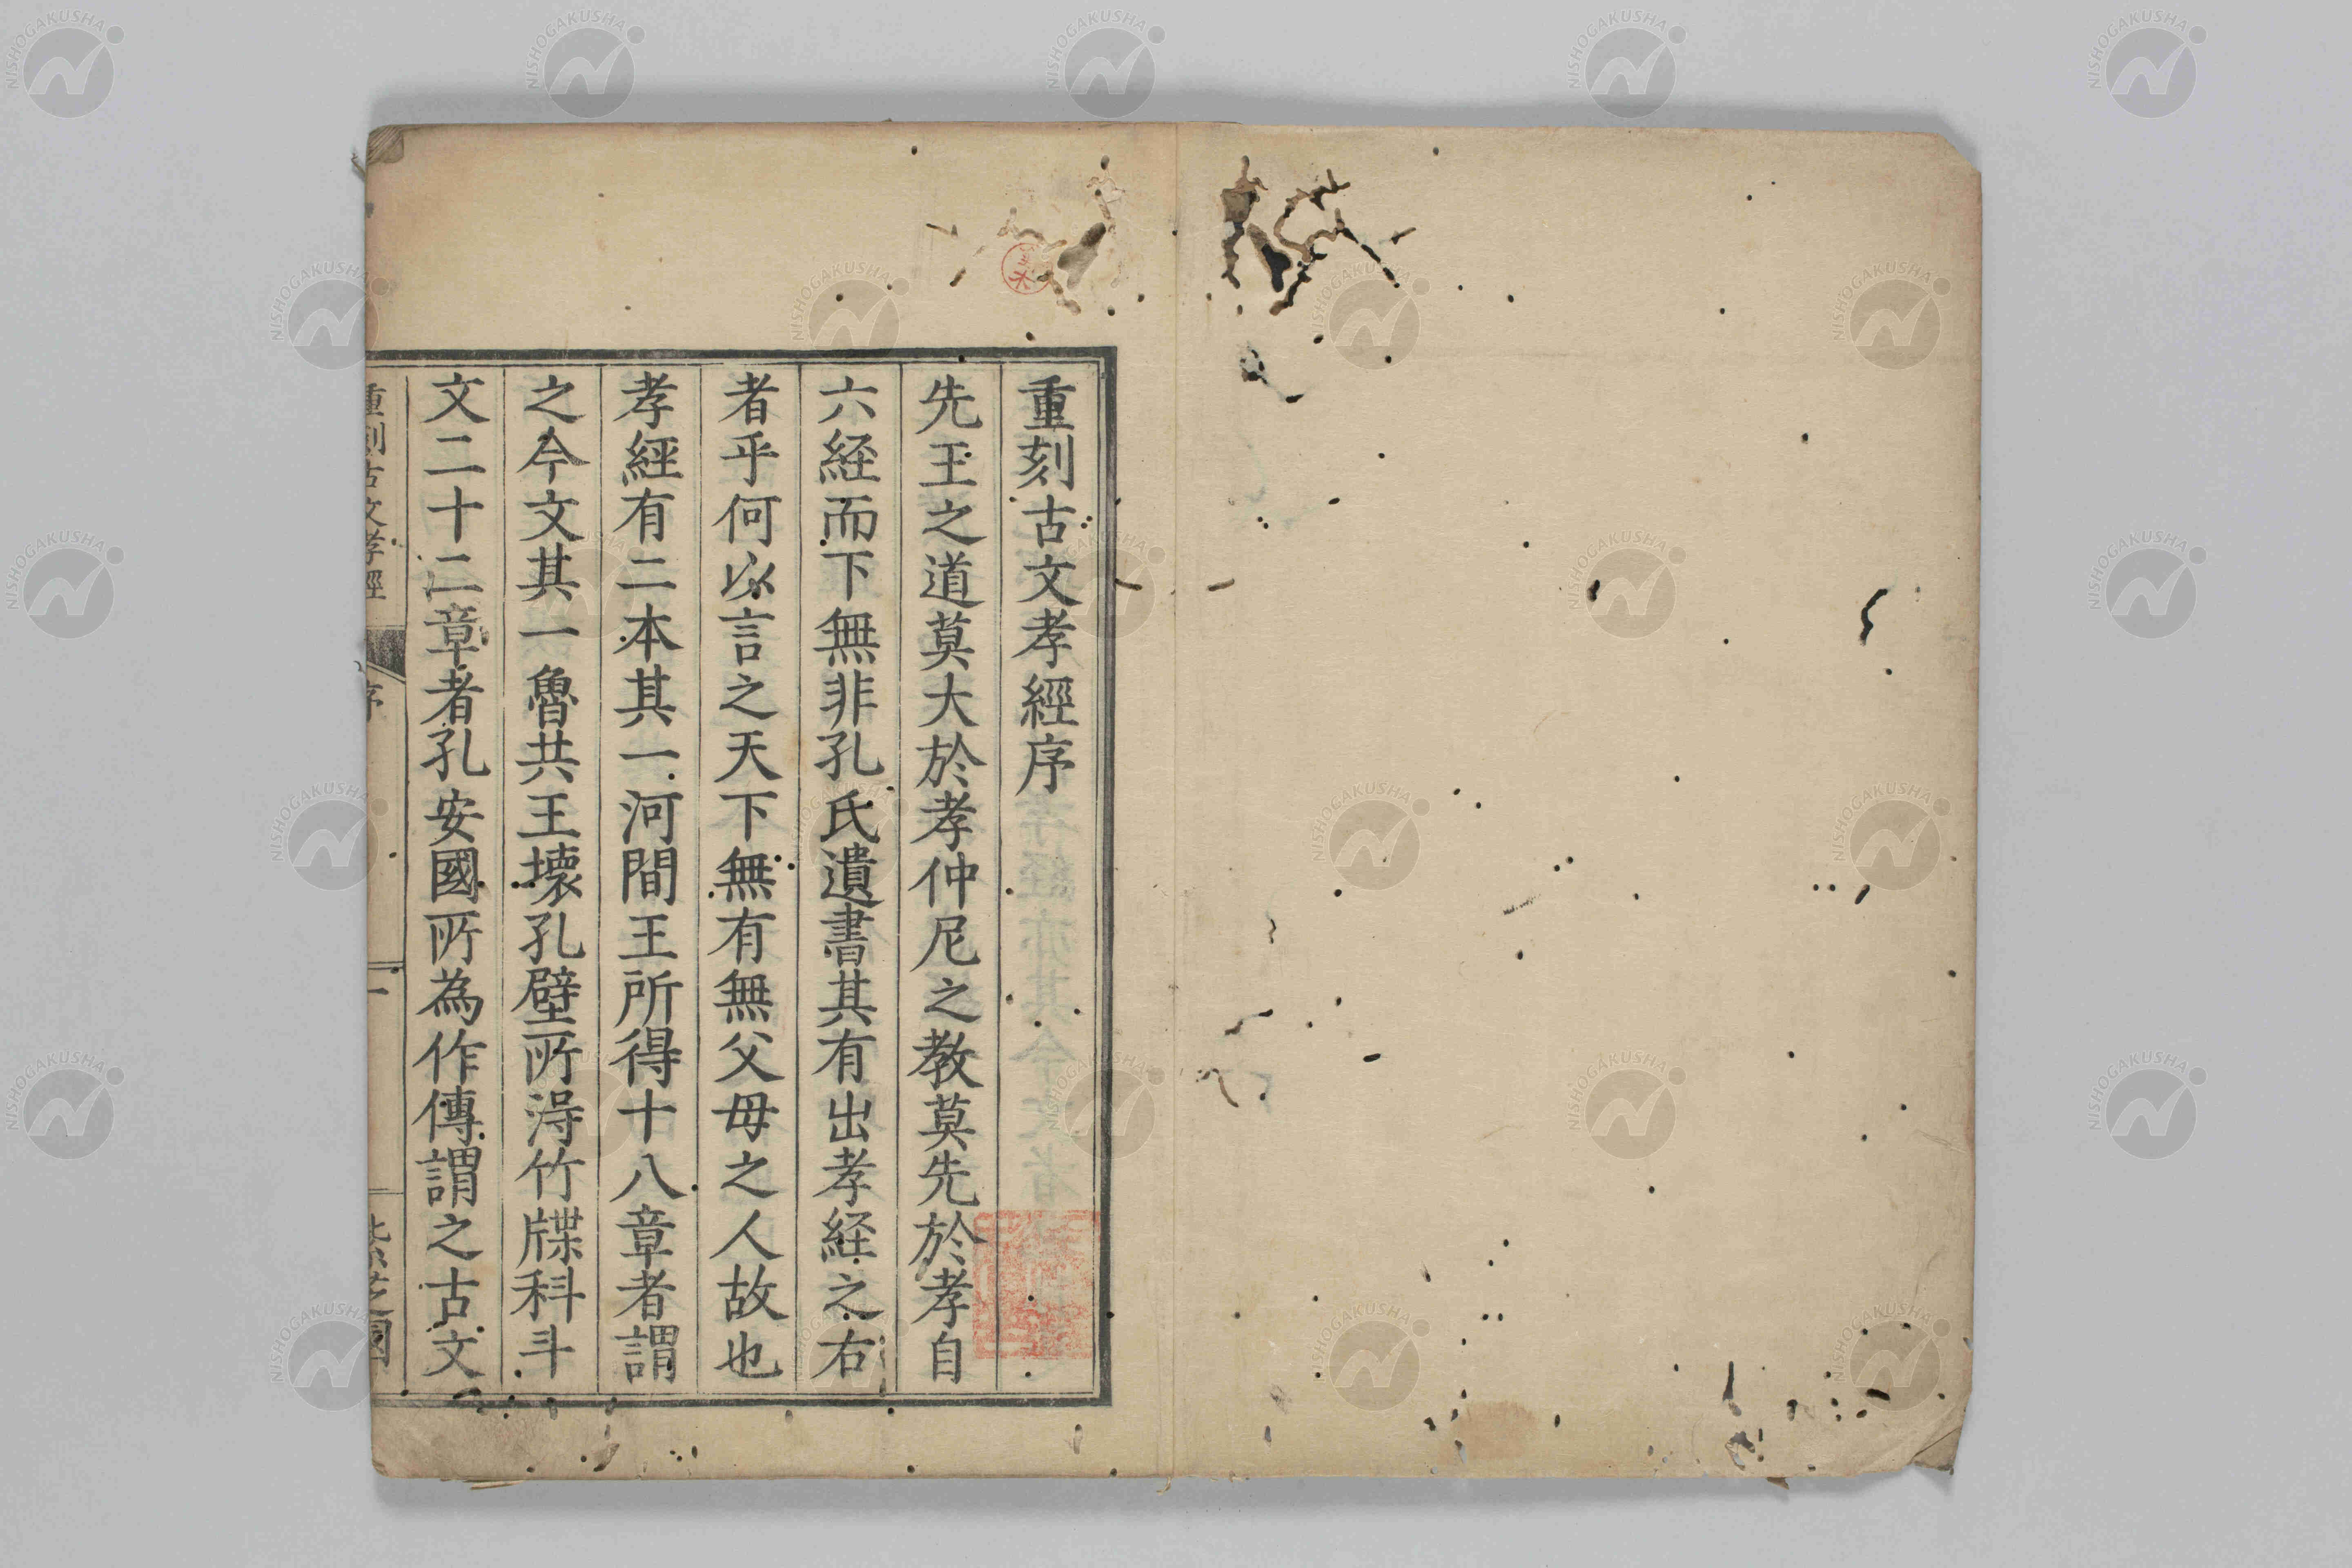 重刻古文孝經序
先王之道莫大於孝仲尼之教莫先於孝自
六経而下無非孔氏遺書其有出孝経之右
者乎何以言之天下無有無父母之人故也
孝經有二本其一河間王所得十八章者謂
之今文其一魯共王壞孔壁所淂竹牒科斗
文二十二章者孔安國所為作傳謂之古文
重刻古文孝經
序
一
紫芝園
NISHOGAKUSHA